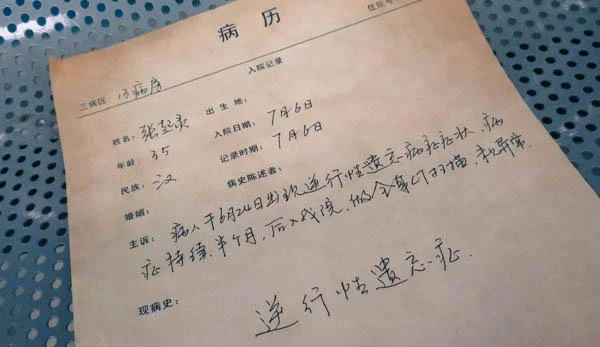 病历
住院号
入院记录
三病区 13病房
姓名：张起灵 出生地：
年龄：35 入院日期：7月6日
民族：汉 记录时期：7月6日
婚姻： 病史陈述者：
主诉：病人于6月24日出现逆行性遗忘病症症状，病
症持续半个月，后入我院，做全身CT扫描，未异常。
现病史：
逆行性遗忘症